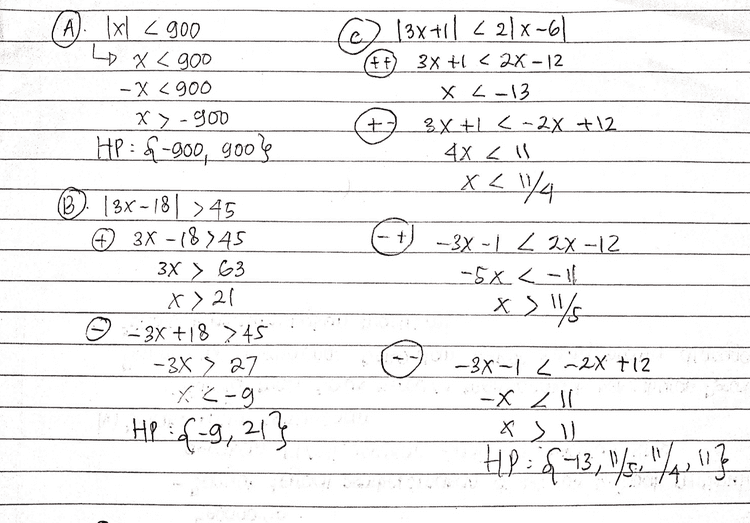 (A). |x| < 900
↳ x < 900
-x < 900
x > -900
HP : {-900, 900}
(B). |3x-18| > 45
(+) 3x -18 > 45
3x > 63
x > 21
(-) -3x +18 > 45
-3x > 27
x < -9
HP : {-9, 21}
(C) |3x+1| < 2|x-6|
(++) 3x +1 < 2x -12
x < -13
(+-) 3x +1 < -2x +12
4x < 11
x < 11/4
(-+) -3x -1 < 2x -12
-5x < -11
x > 11/5
(--) -3x-1 < -2x +12
-x < 11
x > 11
HP : {-13, 11/5, 11/4, 11}